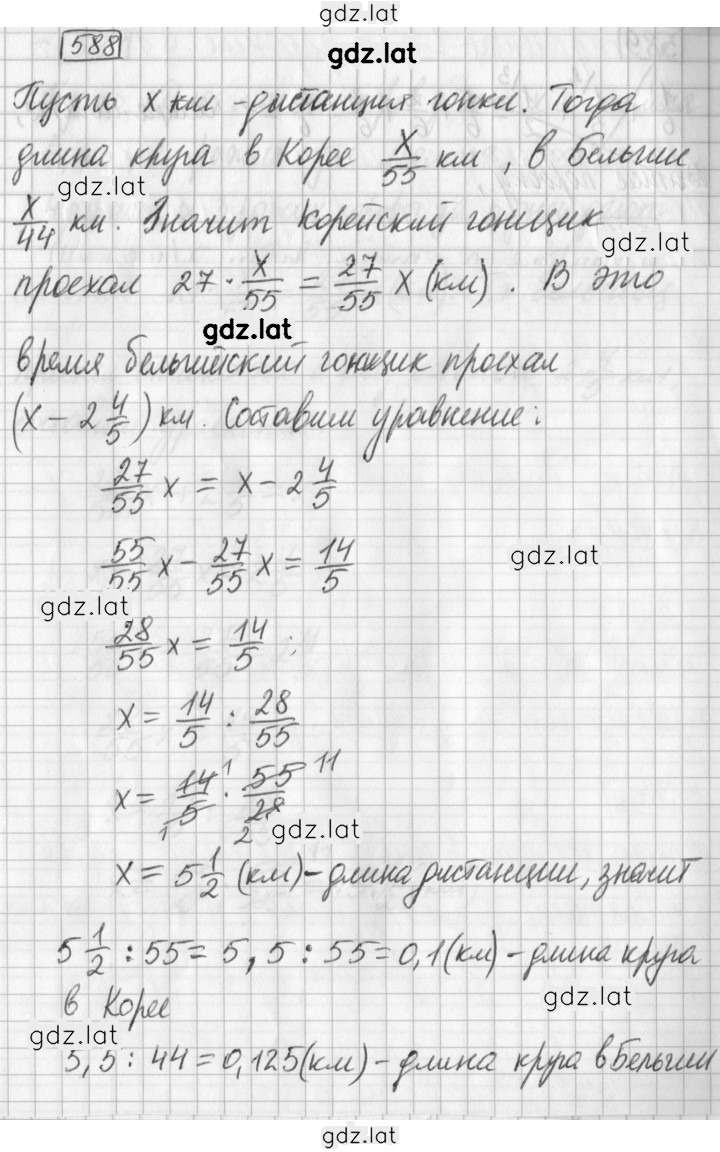 gdz.lat
588
gdz.lat
Пусть x км - дистанция гонки. Тогда
длина круга в Корее x/55 км, в Бельгии
gdz.lat
x/44 км. Значит корейский гонщик
gdz.lat
проехал 27 · x/55 = 27/55 x (км). В это
gdz.lat
время бельгийский гонщик проехал
(x - 2 4/5) км. Составим уравнение:
27/55 x = x - 2 4/5
55/55 x - 27/55 x = 14/5
gdz.lat
gdz.lat
28/55 x = 14/5 ;
x = 14/5 : 28/55
x = 14/5 · 55/28 1 11 1 2
gdz.lat
x = 5 1/2 (км) - длина дистанции, значит
5 1/2 : 55 = 5,5 : 55 = 0,1 (км) - длина круга
gdz.lat
в Корее
gdz.lat
5,5 : 44 = 0,125 (км) - длина круга в Бельгии
gdz.lat